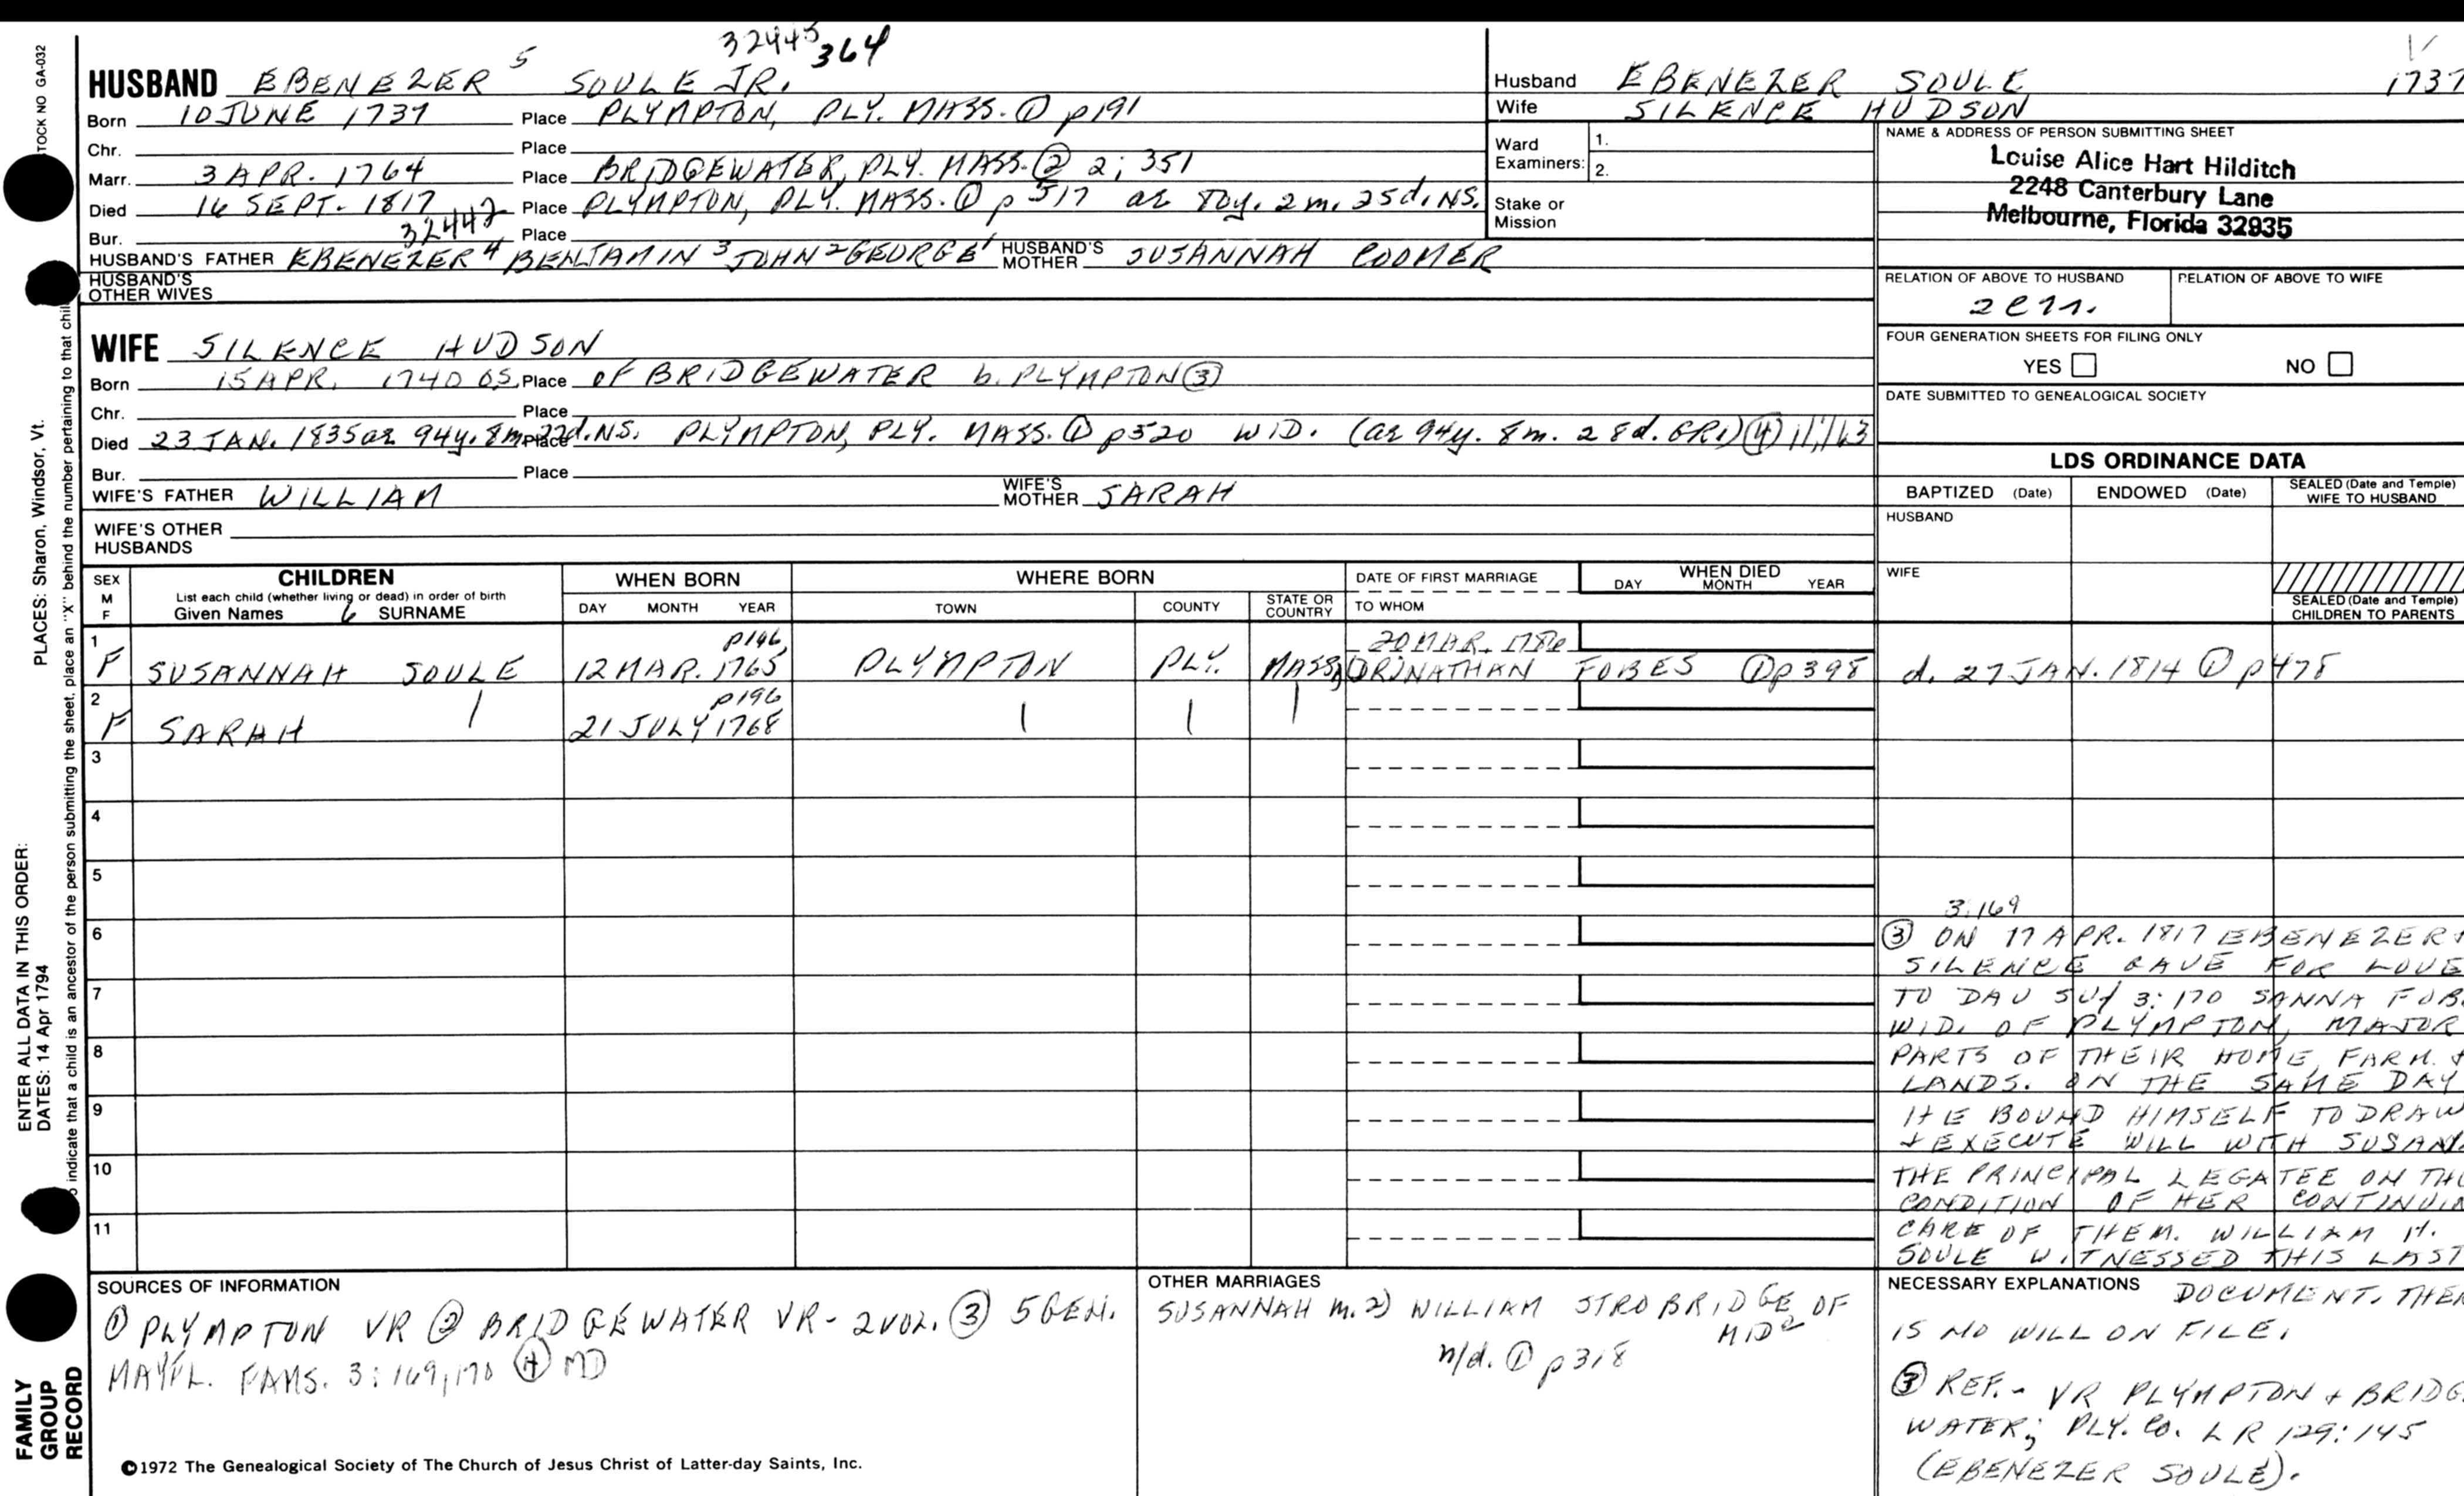 32445 364
HUSBAND EBENEZER 5 SOULE JR.
Born 10 JUNE 1737 Place PLYMPTON, PLY. MASS. ① p191
Chr. Place
Marr. 3 APR. 1764 Place BRIDGEWATER, PLY. MASS. ② 2; 351
Died 16 SEPT. 1817 Place PLYMPTON, PLY. MASS. ① p 517 ae 80y. 2m. 25d. NS.
Bur. 32442 Place
HUSBAND'S FATHER EBENEZER 4 BENJAMIN 3 JOHN 2 GEORGE 1 HUSBAND'S MOTHER SUSANNAH COOMER
HUSBAND'S OTHER WIVES
WIFE SILENCE HUDSON
Born 15 APR. 1740 OS. Place OF BRIDGEWATER b. PLYMPTON ③
Chr. Place
Died 23 JAN. 1835 ae 94y. 8m. 27d. NS. Place PLYMPTON, PLY. MASS. ① p520 WID. (ae 94y. 8m. 28d. GR1) ④ 11;163
Bur. Place
WIFE'S FATHER WILLIAM WIFE'S MOTHER SARAH
WIFE'S OTHER HUSBANDS
Husband EBENEZER SOULE 1737
Wife SILENCE HUDSON
Ward Examiners: 1. 2.
Stake or Mission
NAME & ADDRESS OF PERSON SUBMITTING SHEET
Louise Alice Hart Hilditch
2248 Canterbury Lane
Melbourne, Florida 32935
RELATION OF ABOVE TO HUSBAND RELATION OF ABOVE TO WIFE
FOUR GENERATION SHEETS FOR FILING ONLY
YES NO
DATE SUBMITTED TO GENEALOGICAL SOCIETY
LDS ORDINANCE DATA
BAPTIZED (Date) ENDOWED (Date) SEALED (Date and Temple) WIFE TO HUSBAND
HUSBAND
WIFE
SEALED (Date and Temple) CHILDREN TO PARENTS
SEX M F
CHILDREN
List each child (whether living or dead) in order of birth
Given Names 6 SURNAME
WHEN BORN
DAY MONTH YEAR
WHERE BORN
TOWN COUNTY STATE OR COUNTRY
DATE OF FIRST MARRIAGE
TO WHOM
WHEN DIED
DAY MONTH YEAR
1 p196 20 MAR. 1786
F SUSANNAH SOULE 12 MAR. 1765 PLYMPTON PLY. MASS. ORINATHAN FOBES ① p398 d. 27 JAN. 1814 ① p478
2 p196
F SARAH 21 JULY 1768
3
4
5
6
7
8
9
10
11
3:169
③ ON 17 APR. 1817 EBENEZER +
SILENCE GAVE FOR LOVE
TO DAU SU/ 3:170 SANNA FOB
WID. OF PLYMPTON, MAJOR
PARTS OF THEIR HOME, FARM. +
LANDS. ON THE SAME DAY
HE BOUND HIMSELF TO DRAW
+ EXECUTE WILL WITH SUSAN
THE PRINCIPAL LEGATEE ON TH
CONDITION OF HER CONTINUIN
CARE OF THEM. WILLIAM H.
SOULE WITNESSED THIS LAST
NECESSARY EXPLANATIONS DOCUMENT. THER
IS NO WILL ON FILE.
③ REF. - VR PLYMPTON + BRIDGE
WATER; PLY. CO. LR 129:145
(EBENEZER SOULE).
SOURCES OF INFORMATION
① PLYMPTON VR ② BRIDGEWATER VR - 2 VOL. ③ 5 GEN.
MAYFL. FAMS. 3:169,170 ④ MD
OTHER MARRIAGES
SUSANNAH m. 2) WILLIAM STROBRIDGE OF
MID
n/d. ① p318
©1972 The Genealogical Society of The Church of Jesus Christ of Latter-day Saints, Inc.
STOCK NO GA-032
PLACES: Sharon, Windsor, Vt.
ENTER ALL DATA IN THIS ORDER:
DATES: 14 Apr 1794
indicate that a child is an ancestor of the person submitting the sheet, place an "X" behind the number pertaining to that chil
FAMILY
GROUP
RECORD